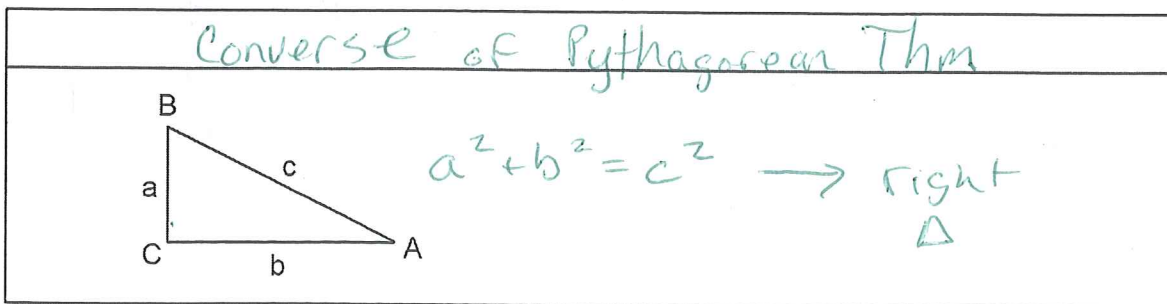 Converse of Pythagorean Thm
B
a
c
C
b
A
a² + b² = c² → right
△